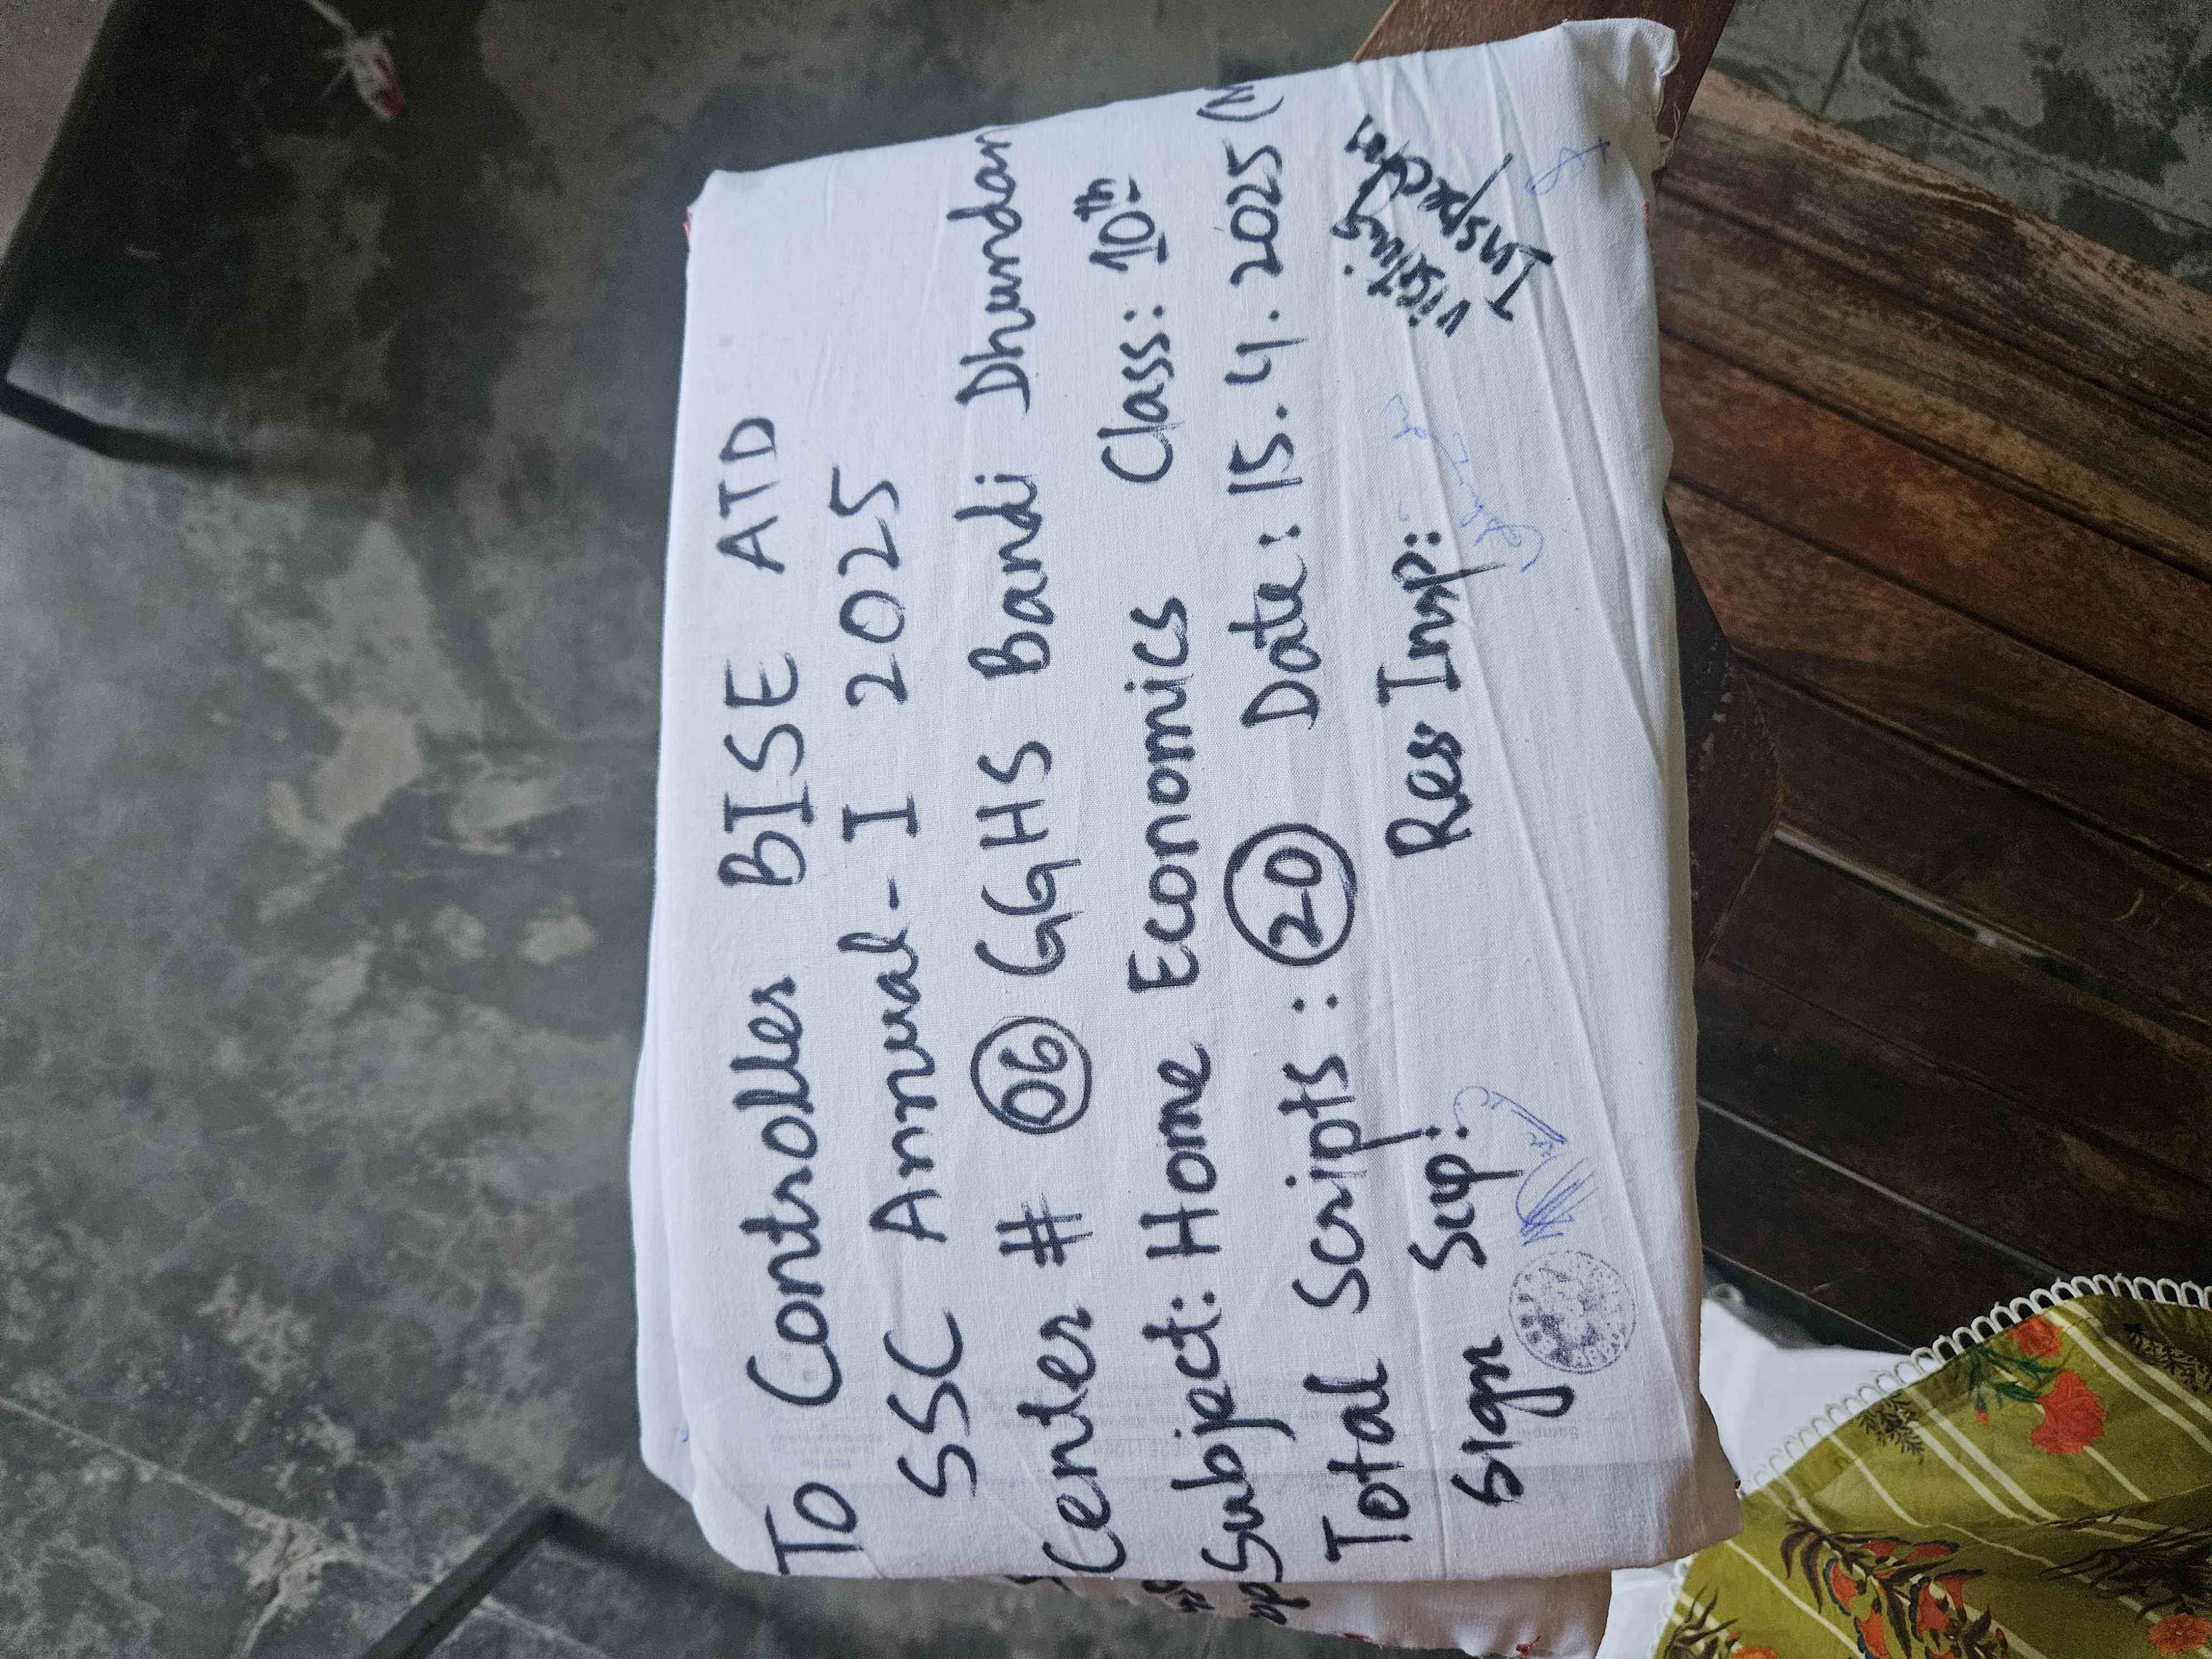 To Controller BISE ATD
SSC Annual-I 2025
Center # 06 GGHS Bandi Dhundan
Subject: Home Economics Class: 10th
Total Scripts: 20 Date: 15.4.2025 (M
Sign Sup: Res Insp:
Visiting Inspector